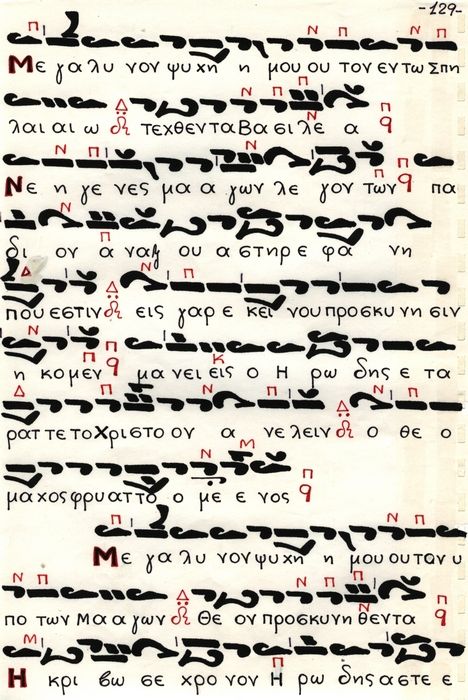 -129-
Με γα λυ νον ψυ χη η μου ου τον εν τω Σπη
λαι αι ω τε χθεν τα Βα σι λε α
Νε η γε νες μα α γων λε γον των πα
δι ον α ναξ ου α στηρ ε φα νη
που εστιν εις γαρ ε κει νου προσκυ νη σιν
η κο μεν μα νει εις ο Η ρω δης ε τα
ρατ τε το Χριστο ον α νε λειν ο θε ο
μα χος φρυατ το ο με ε νος
Με γα λυ νον ψυ χη η μου ου τον υ
πο των Μα α γων Θε ον προσκυ νη θεν τα
Η κρι βω σε χρο νον Η ρω δης α στε ε